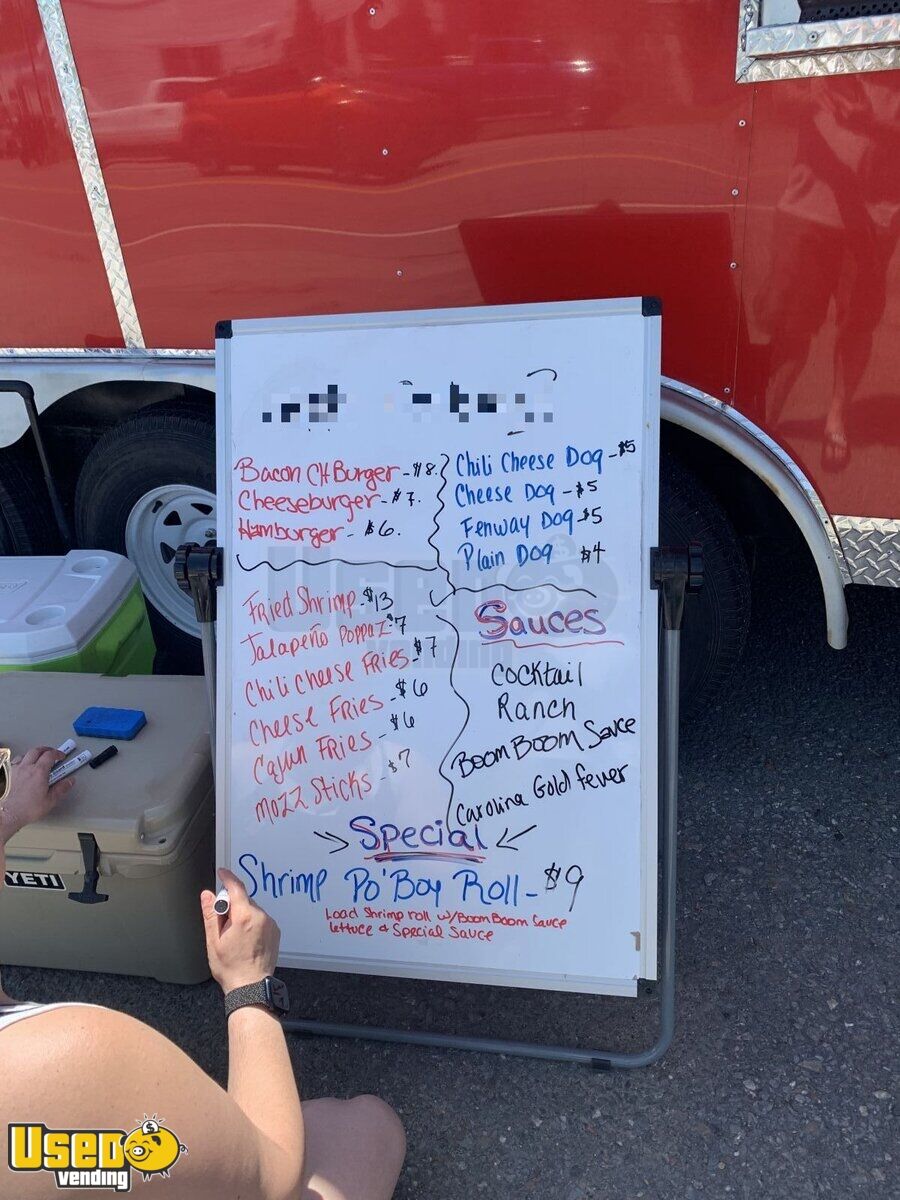 Bacon CH Burger - $8.
Cheeseburger - $7.
Hamburger - $6.
Chili Cheese Dog - $5
Cheese Dog - $5
Fenway Dog - $5
Plain Dog $4
Fried Shrimp - $13
Jalapeño Poppaz $7
Chili Cheese Fries - $7
Cheese Fries - $6
Cajun Fries - $6
Mozz Sticks - $7
Sauces
Cocktail
Ranch
Boom Boom Sauce
Carolina Gold Fever
Special
Shrimp Po'Boy Roll - $9
Load Shrimp roll w/Boom Boom Sauce
lettuce & Special Sauce
YETI
Used
vending
Used
vending